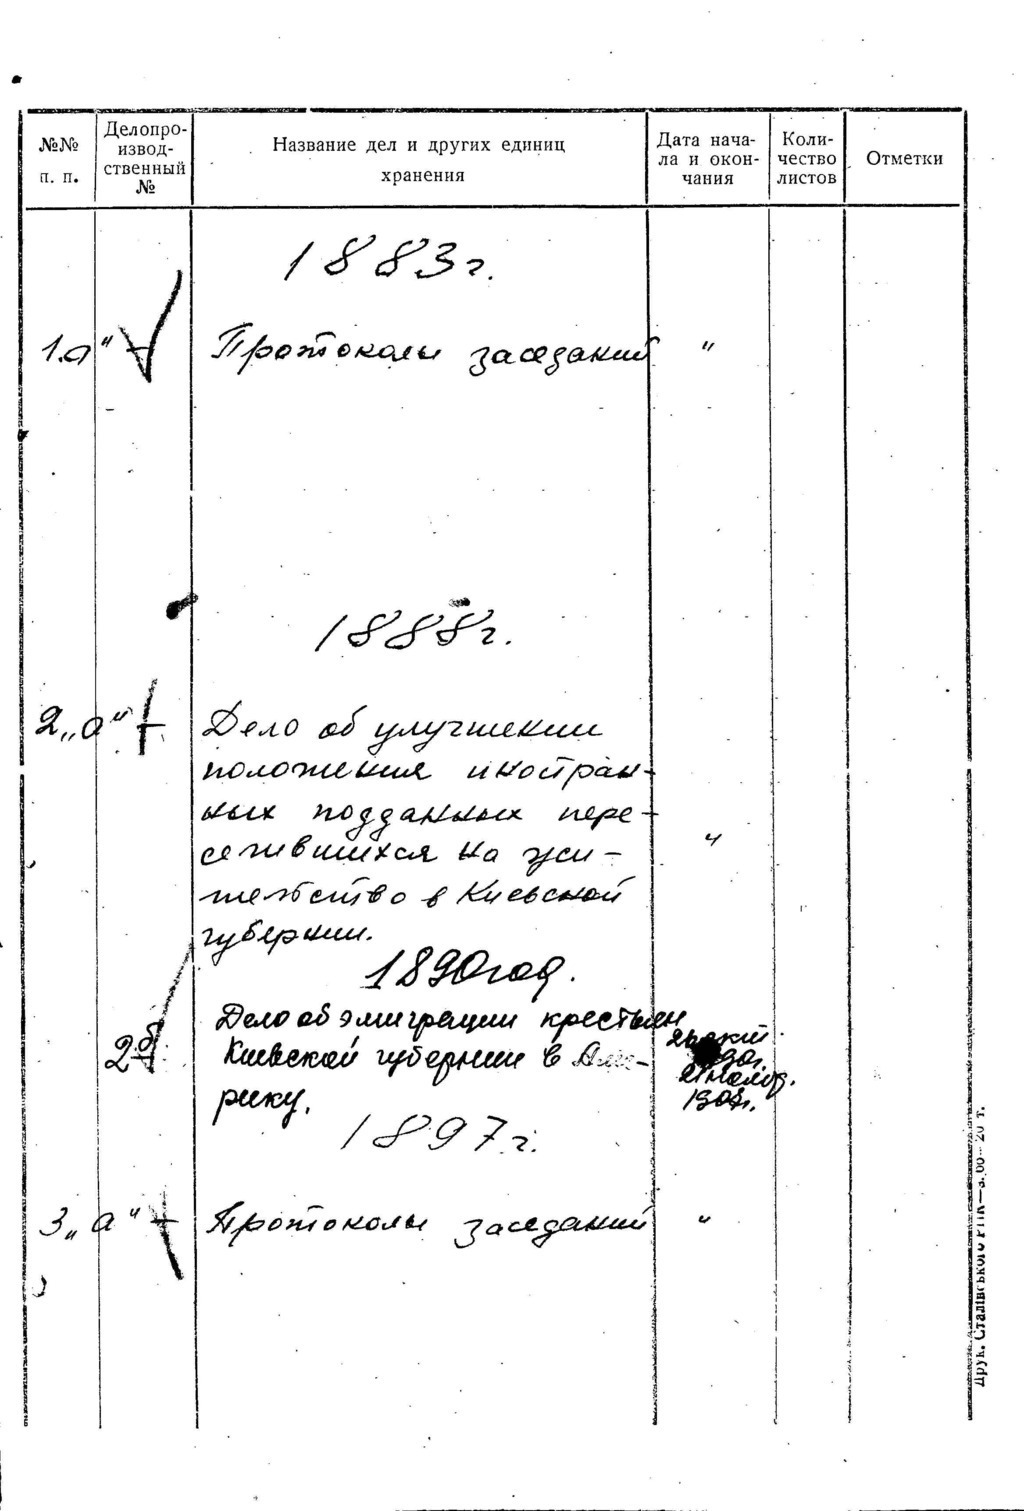 №№ п. п.
Делопро-
извод-
ственный
№
Название дел и других единиц
хранения
Дата нача-
ла и окон-
чания
Коли-
чество
листов
Отметки
1883г.
1.а" Протоколы заседаний "
1888г.
2„а" Дело об улучшении
положения иностран-
ных подданных пере-
селившихся на жи-
тельство в Киевской "
губернии.
1890год.
2б Дело об эмиграции крестьян
Киевской губернии в Аме-
рику.
90г.
190
1897г.
3„а" Протоколы заседаний "
Друк. Сталівського